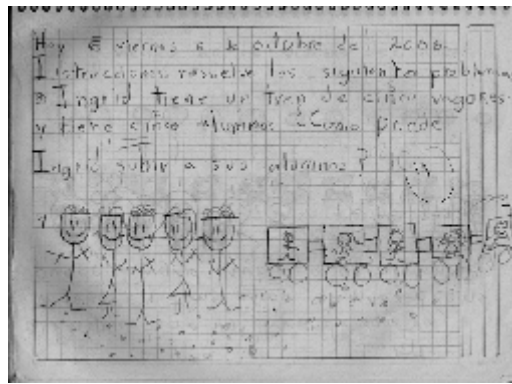 Hoy es viernes de octubre del 2008.
Instrucciones resuelve los siguiente problema
Ingrid tiene un tren de cinco vagones
y tiene cinco alumnos ¿Como puede
Ingrid subir a sus alumnos?